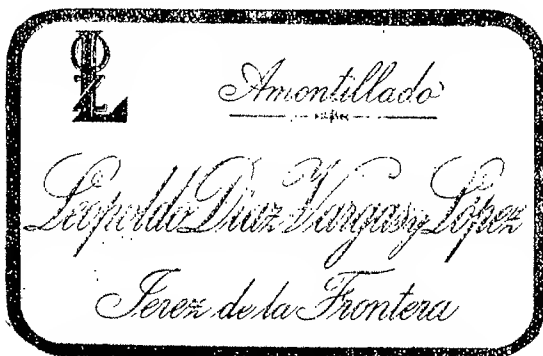 Amontillado
Leopoldo Díaz Vargas y López
Jerez de la Frontera